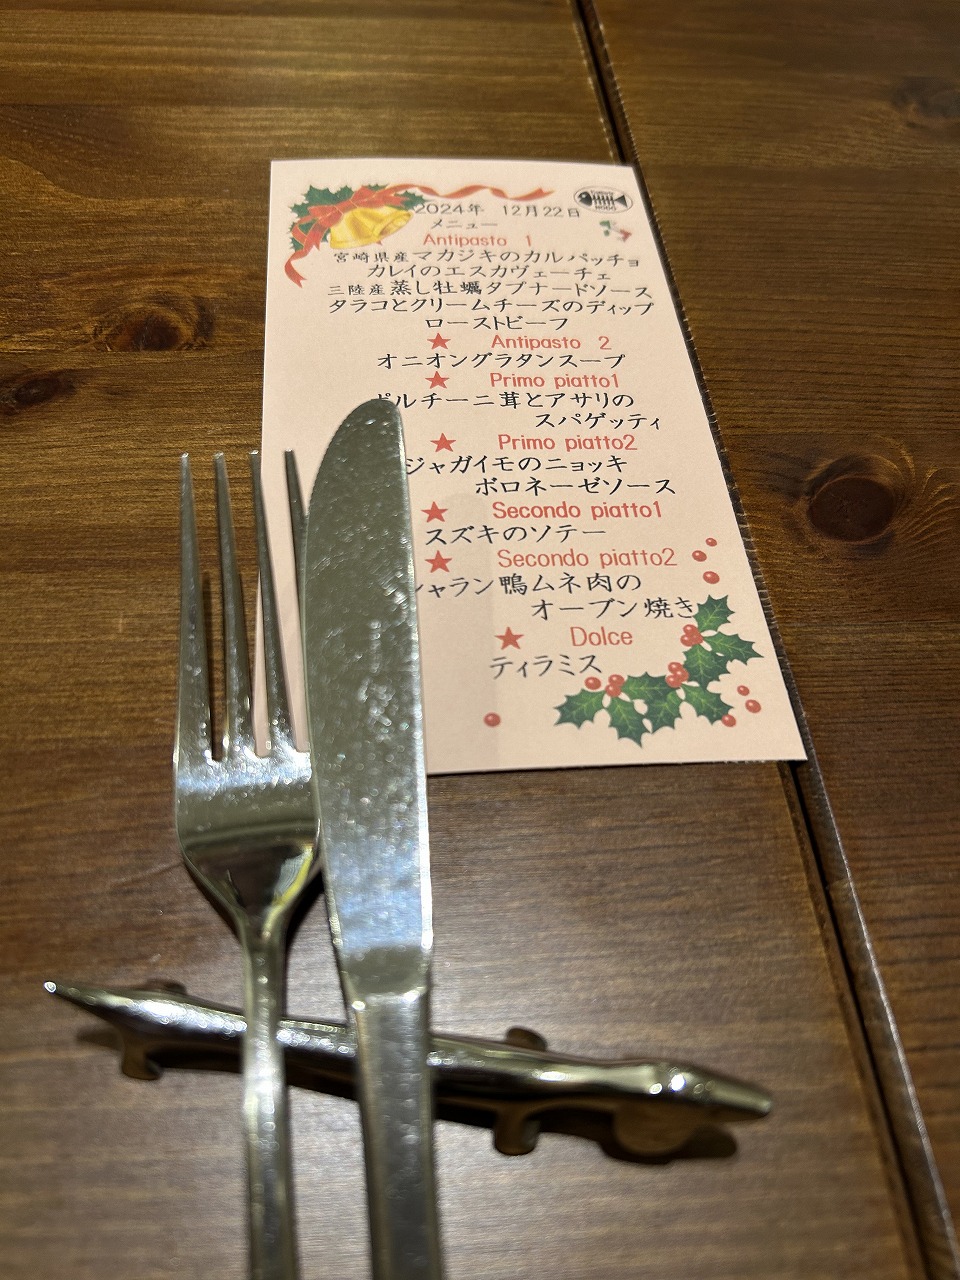 2024年 12月22日
メニュー
Antipasto 1
宮崎県産マカジキのカルパッチョ
カレイのエスカヴェーチェ
三陸産蒸し牡蠣タプナードソース
タラコとクリームチーズのディップ
ローストビーフ
★ Antipasto 2
オニオングラタンスープ
★ Primo piatto1
ポルチーニ茸とアサリの
スパゲッティ
★ Primo piatto2
ジャガイモのニョッキ
ボロネーゼソース
★ Secondo piatto1
スズキのソテー
★ Secondo piatto2
鴨ムネ肉の
オーブン焼き
★ Dolce
ティラミス